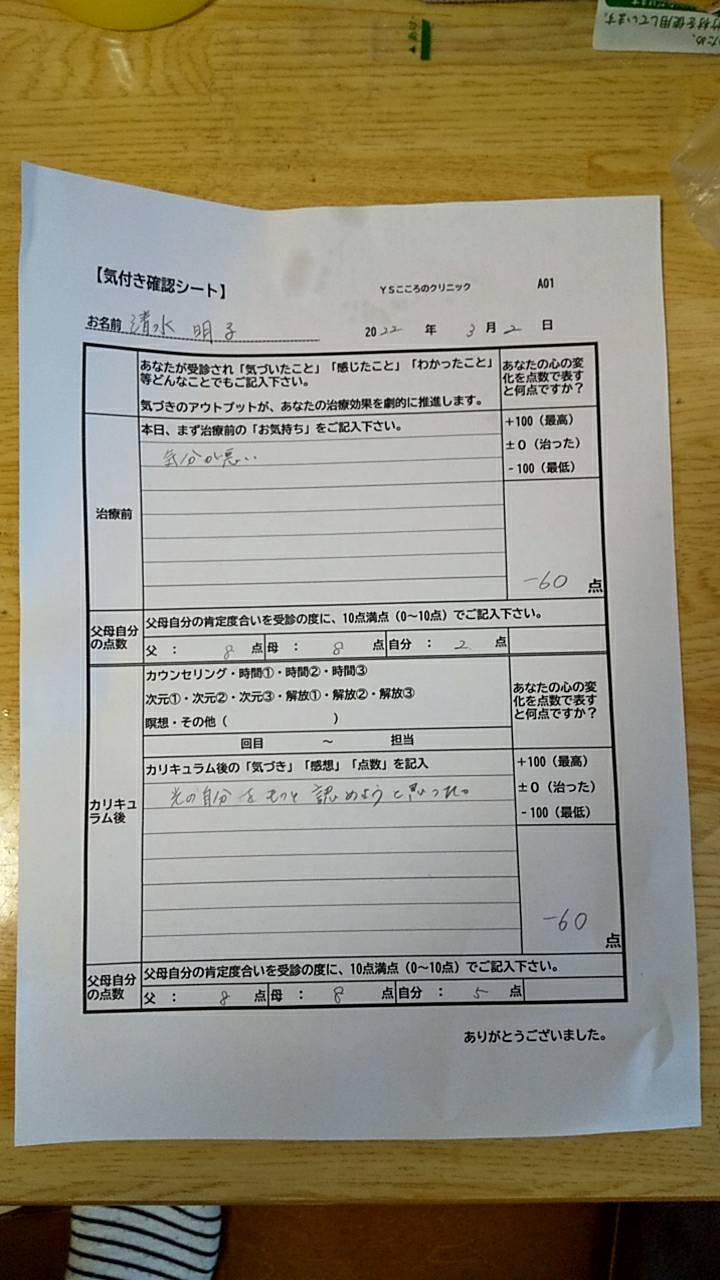 ▲あけ
材を使用しています。
【気付き確認シート】
YSこころのクリニック
A01
お名前 清水 明子
2022 年 3月 2 日
あなたが受診され「気づいたこと」「感じたこと」「わかったこと」
等どんなことでもご記入下さい。
気づきのアウトプットが、あなたの治療効果を劇的に推進します。
あなたの心の変
化を点数で表す
と何点ですか？
治療前
本日、まず治療前の「お気持ち」をご記入下さい。
気分が悪い
+100（最高）
±0（治った）
-100（最低）
-60 点
父母自分
の点数
父母自分の肯定度合いを受診の度に、10点満点（0～10点）でご記入下さい。
父 ： 8 点 母 ： 8 点 自分 ： 2 点
カリキュ
ラム後
カウンセリング・時間①・時間②・時間③
次元①・次元②・次元③・解放①・解放②・解放③
瞑想・その他（ ）
回目 ～ 担当
あなたの心の変
化を点数で表す
と何点ですか？
カリキュラム後の「気づき」「感想」「点数」を記入
光の自分をもっと認めようと思った。
+100（最高）
±0（治った）
-100（最低）
-60 点
父母自分
の点数
父母自分の肯定度合いを受診の度に、10点満点（0～10点）でご記入下さい。
父 ： 8 点 母 ： 8 点 自分 ： 5 点
ありがとうございました。